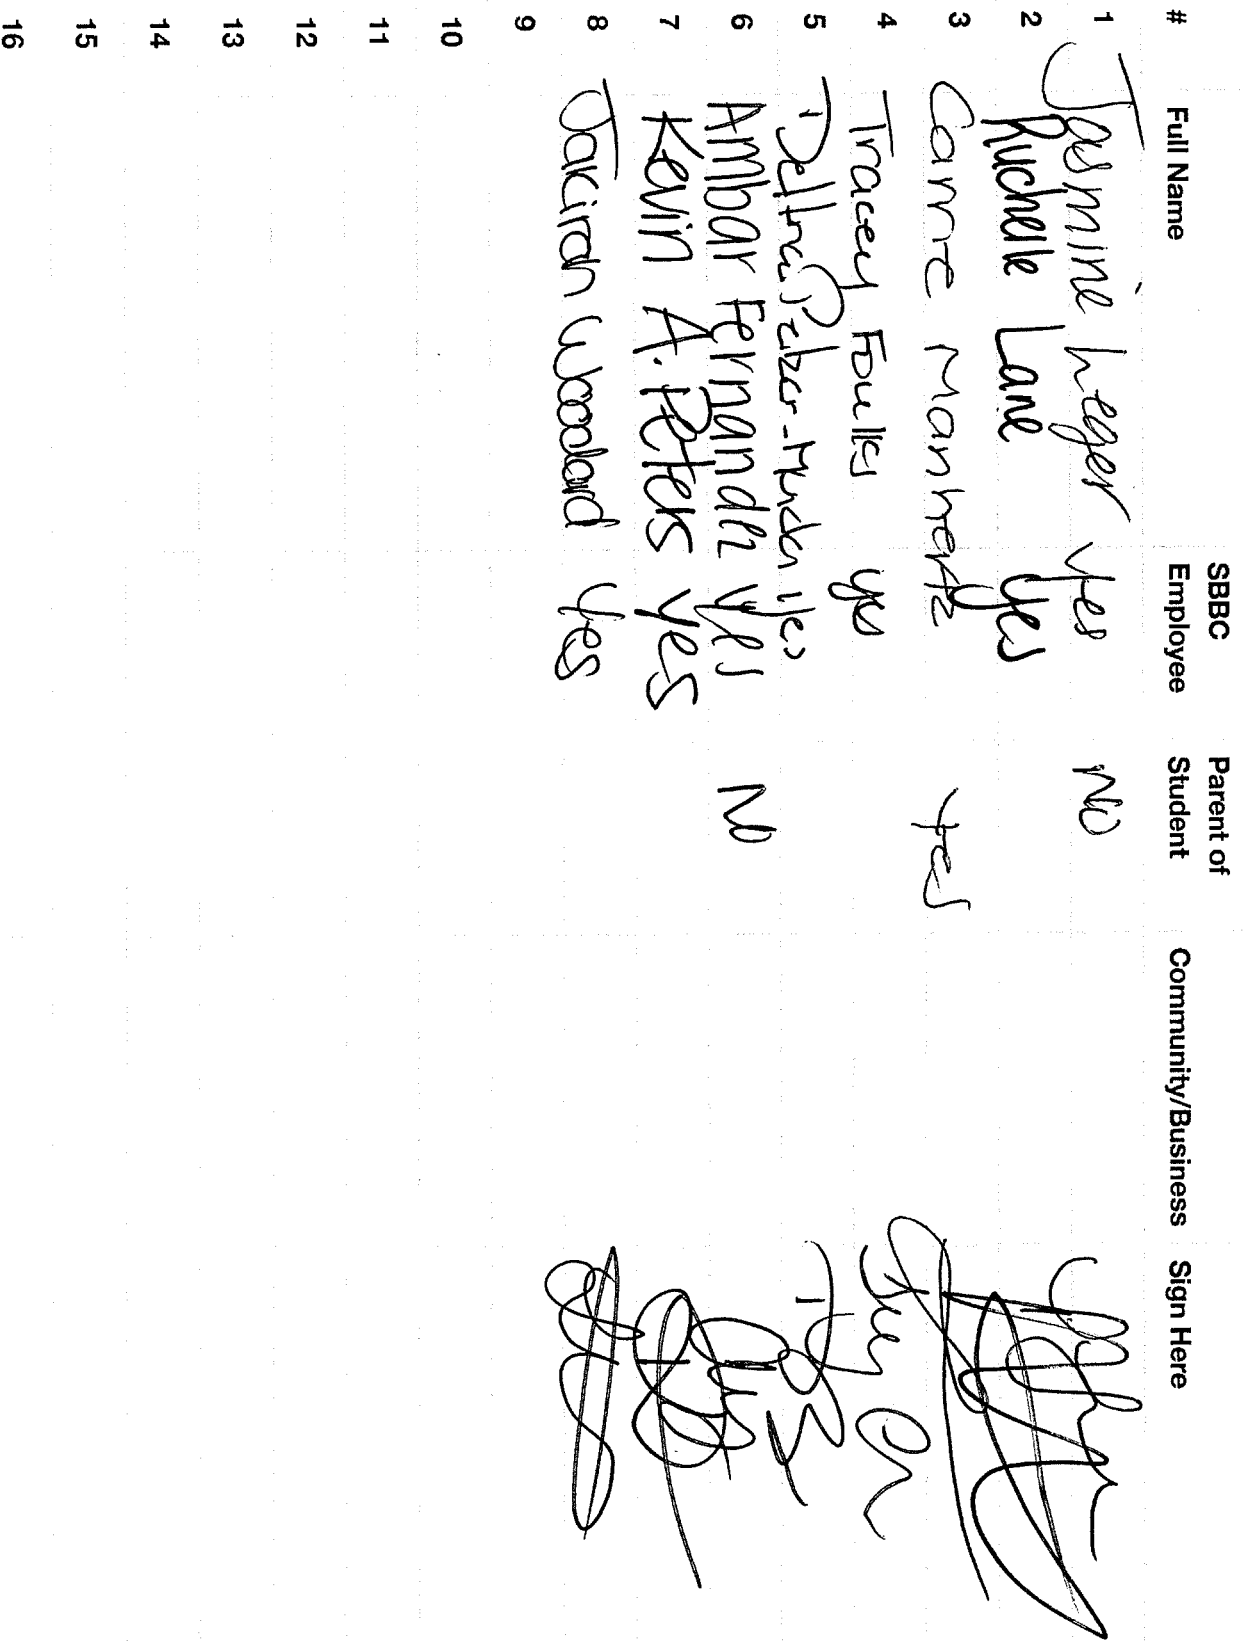 # Full Name SBBC Employee Parent of Student Community/Business Sign Here
1 Jasmine Leger Yes No
2 Ruchelle Lane yes
3 Carrie Manhertz yes
4 Tracey Foulks yes
5 yes
6 Ambar Fernandez yes No
7 Kevin A. Peters yes
8 Jakirah Woodard Yes
9
10
11
12
13
14
15
16